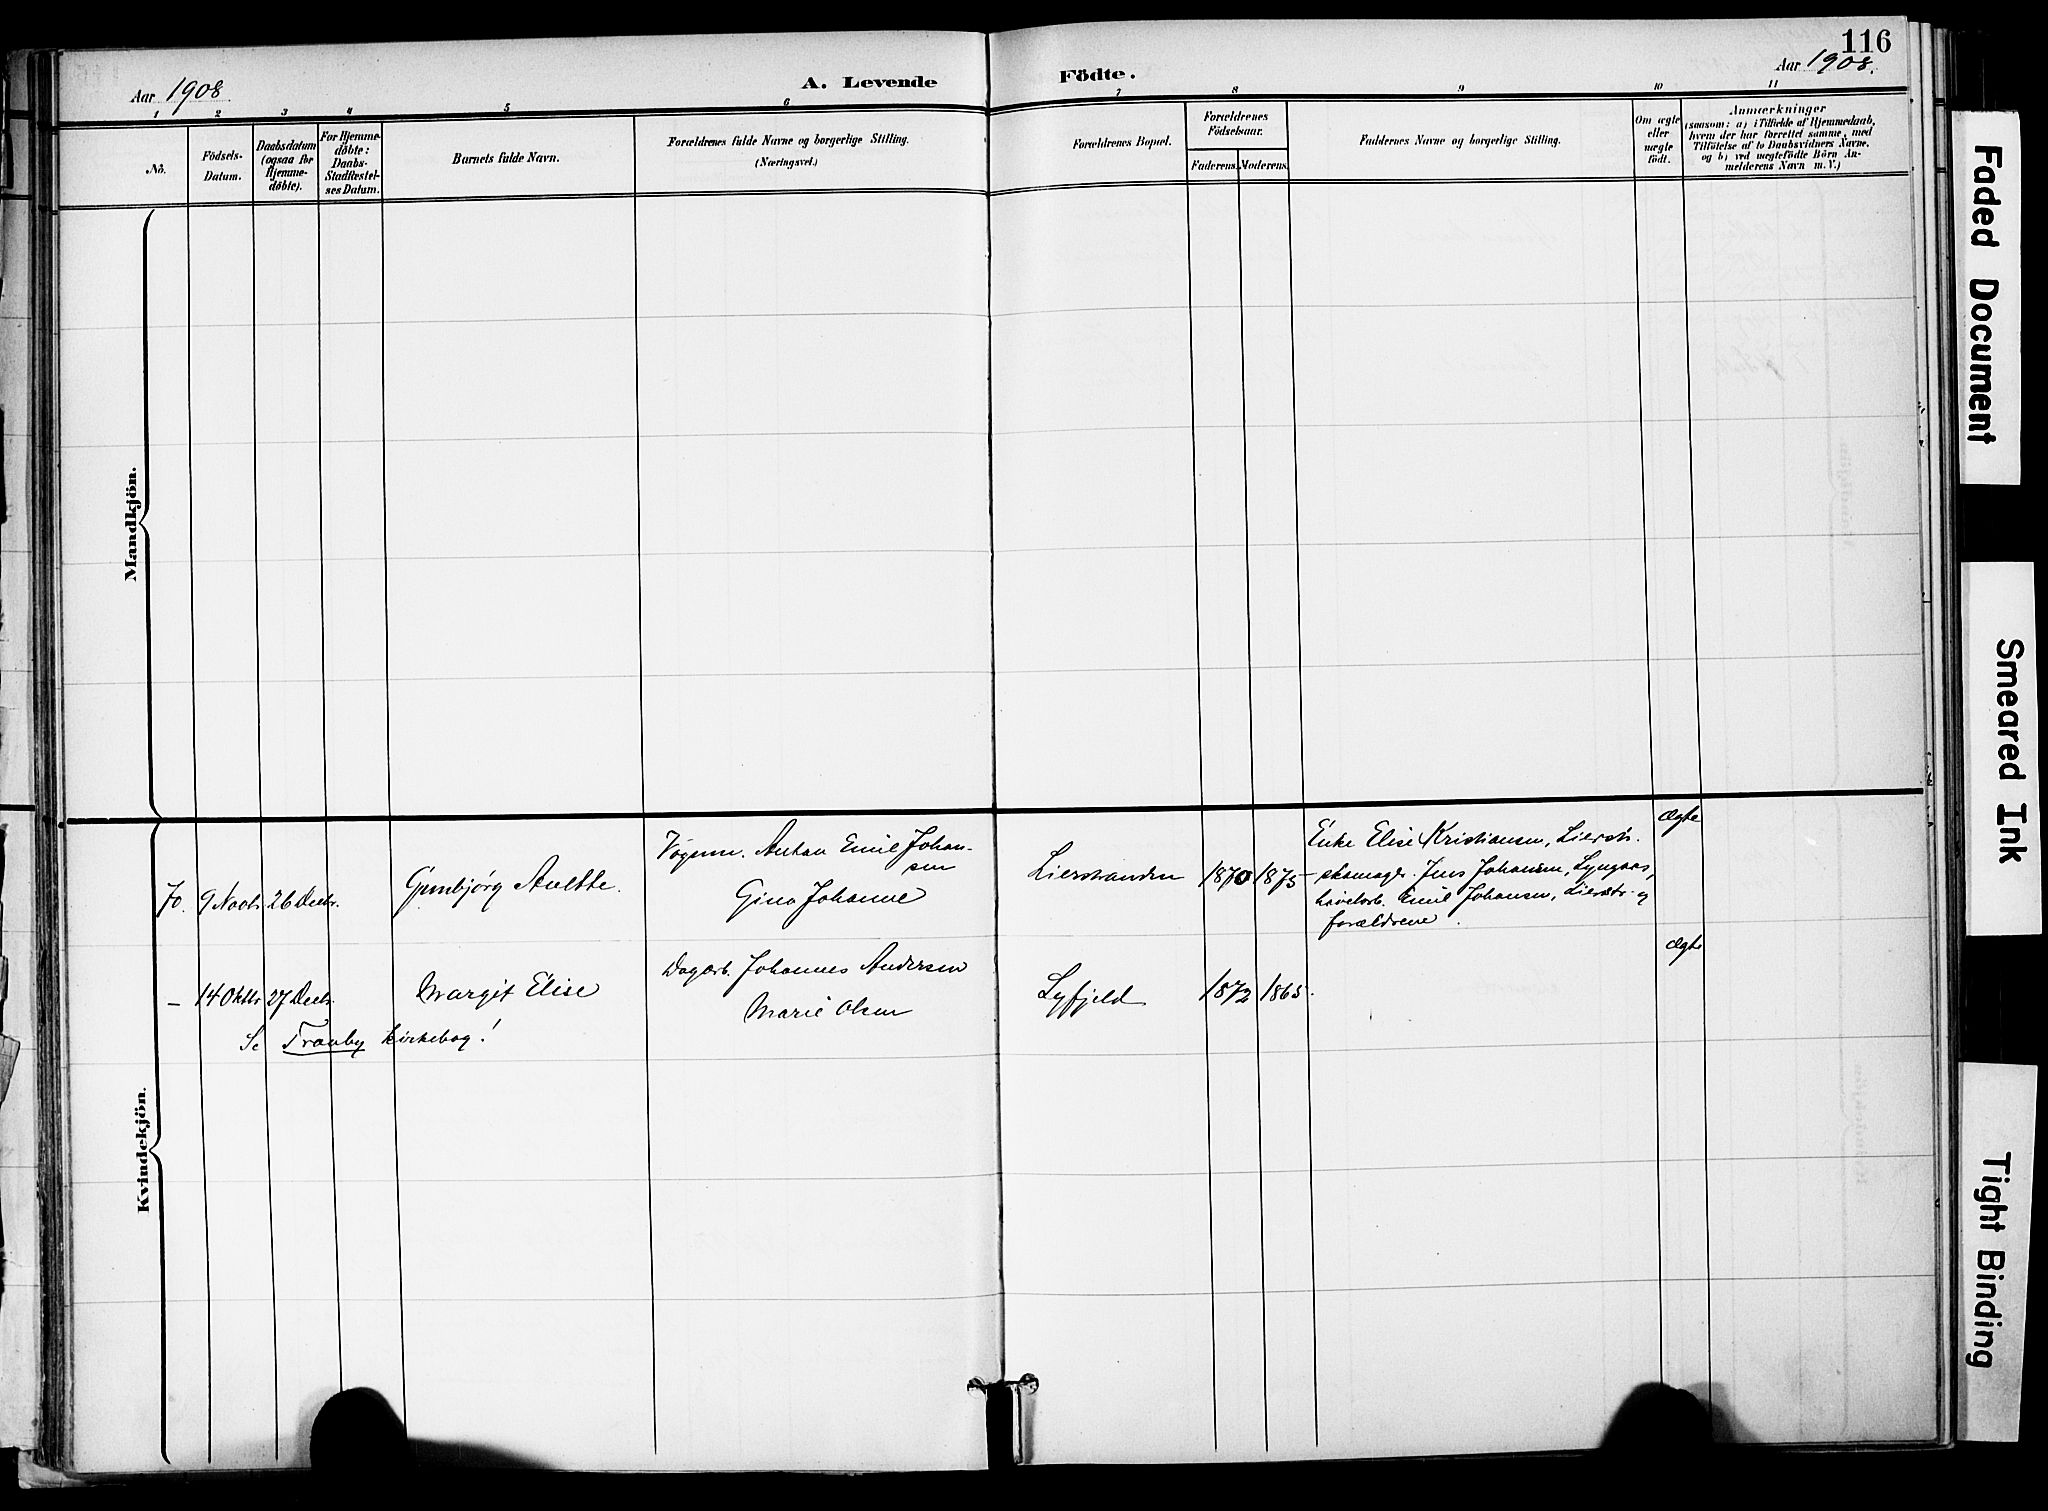 116
Aar 1908.
A. Levende Födte.
Aar 1908.
1 2 3 4 5 6 7 8 9 10 11
No.
Födsels-
Datum.
Daabsdatum
(ogsaa for
Hjemme-
döbte).
For Hjemme-
döbte:
Daabs-
Stadfæstel-
ses Datum.
Barnets fulde Navn.
Forældrenes fulde Navne og borgerlige Stilling.
(Næringsvei.)
Forældrenes Bopæl.
Forældrenes
Födselsaar.
Faderens. Moderens.
Faddernes Navne og borgerlige Stilling.
Om ægte
eller
uægte
født.
Anmærkninger
(saasom: a) i Tilfælde af Hjemmedaab,
hvem der har forrettet samme, med
Tilföielse af to Daabsvidners Navne.
og b) ved uægtefödte Börn An-
melderens Navn m. V.)
Mandkjön.
Kvindekjön.
70. 9 Novbr. 26 Decbr.
Gunbjørg Anette.
Vognm. Anton Emil Johan-
sen
Gina Johanne
Lierstranden
1870 1875
Enke Elise Kristiansen, Lierstr.
skomager Jens Johansen, Lyngaas,
høvelarb. Emil Johansen, Lierstr. og
forældrene.
ægte
– 14 Oktbr 27 Decbr.
Margit Elise
Dagarb. Johannes Andersen
Marie Olsen
Lyfjeld
1872 1865.
ægte
Se Tranby kirkebog!
Faded Document
Smeared Ink
Tight Binding